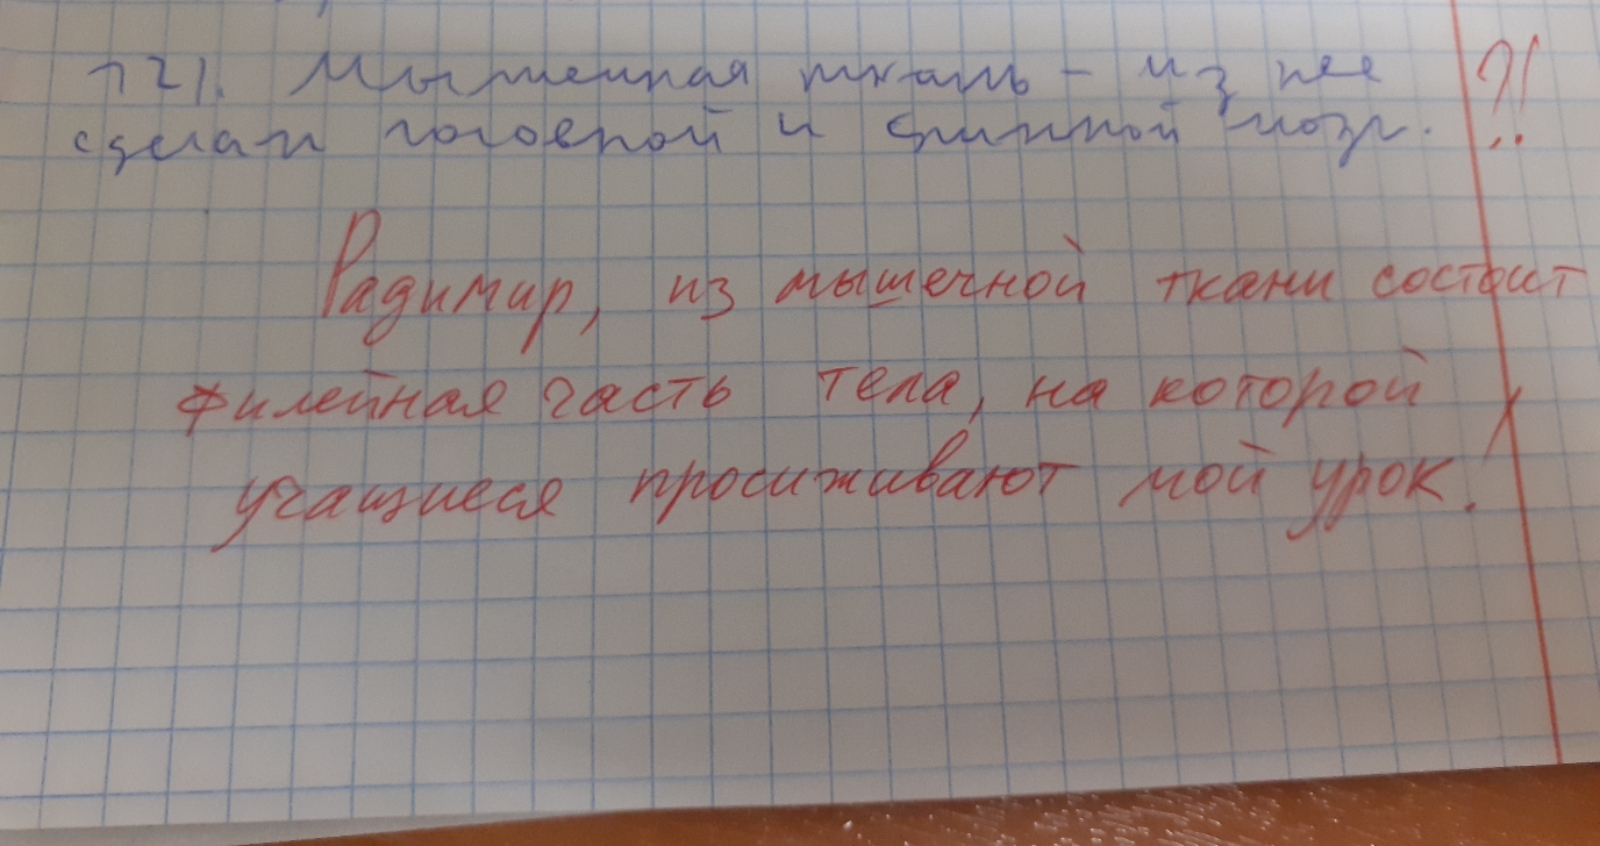 12). Мышечная ткань - из нее ?!
сделан головной и спинной мозг.
Радимир, из мышечной ткани состоит
филейная часть тела, на которой
учащиеся просиживают мой урок!